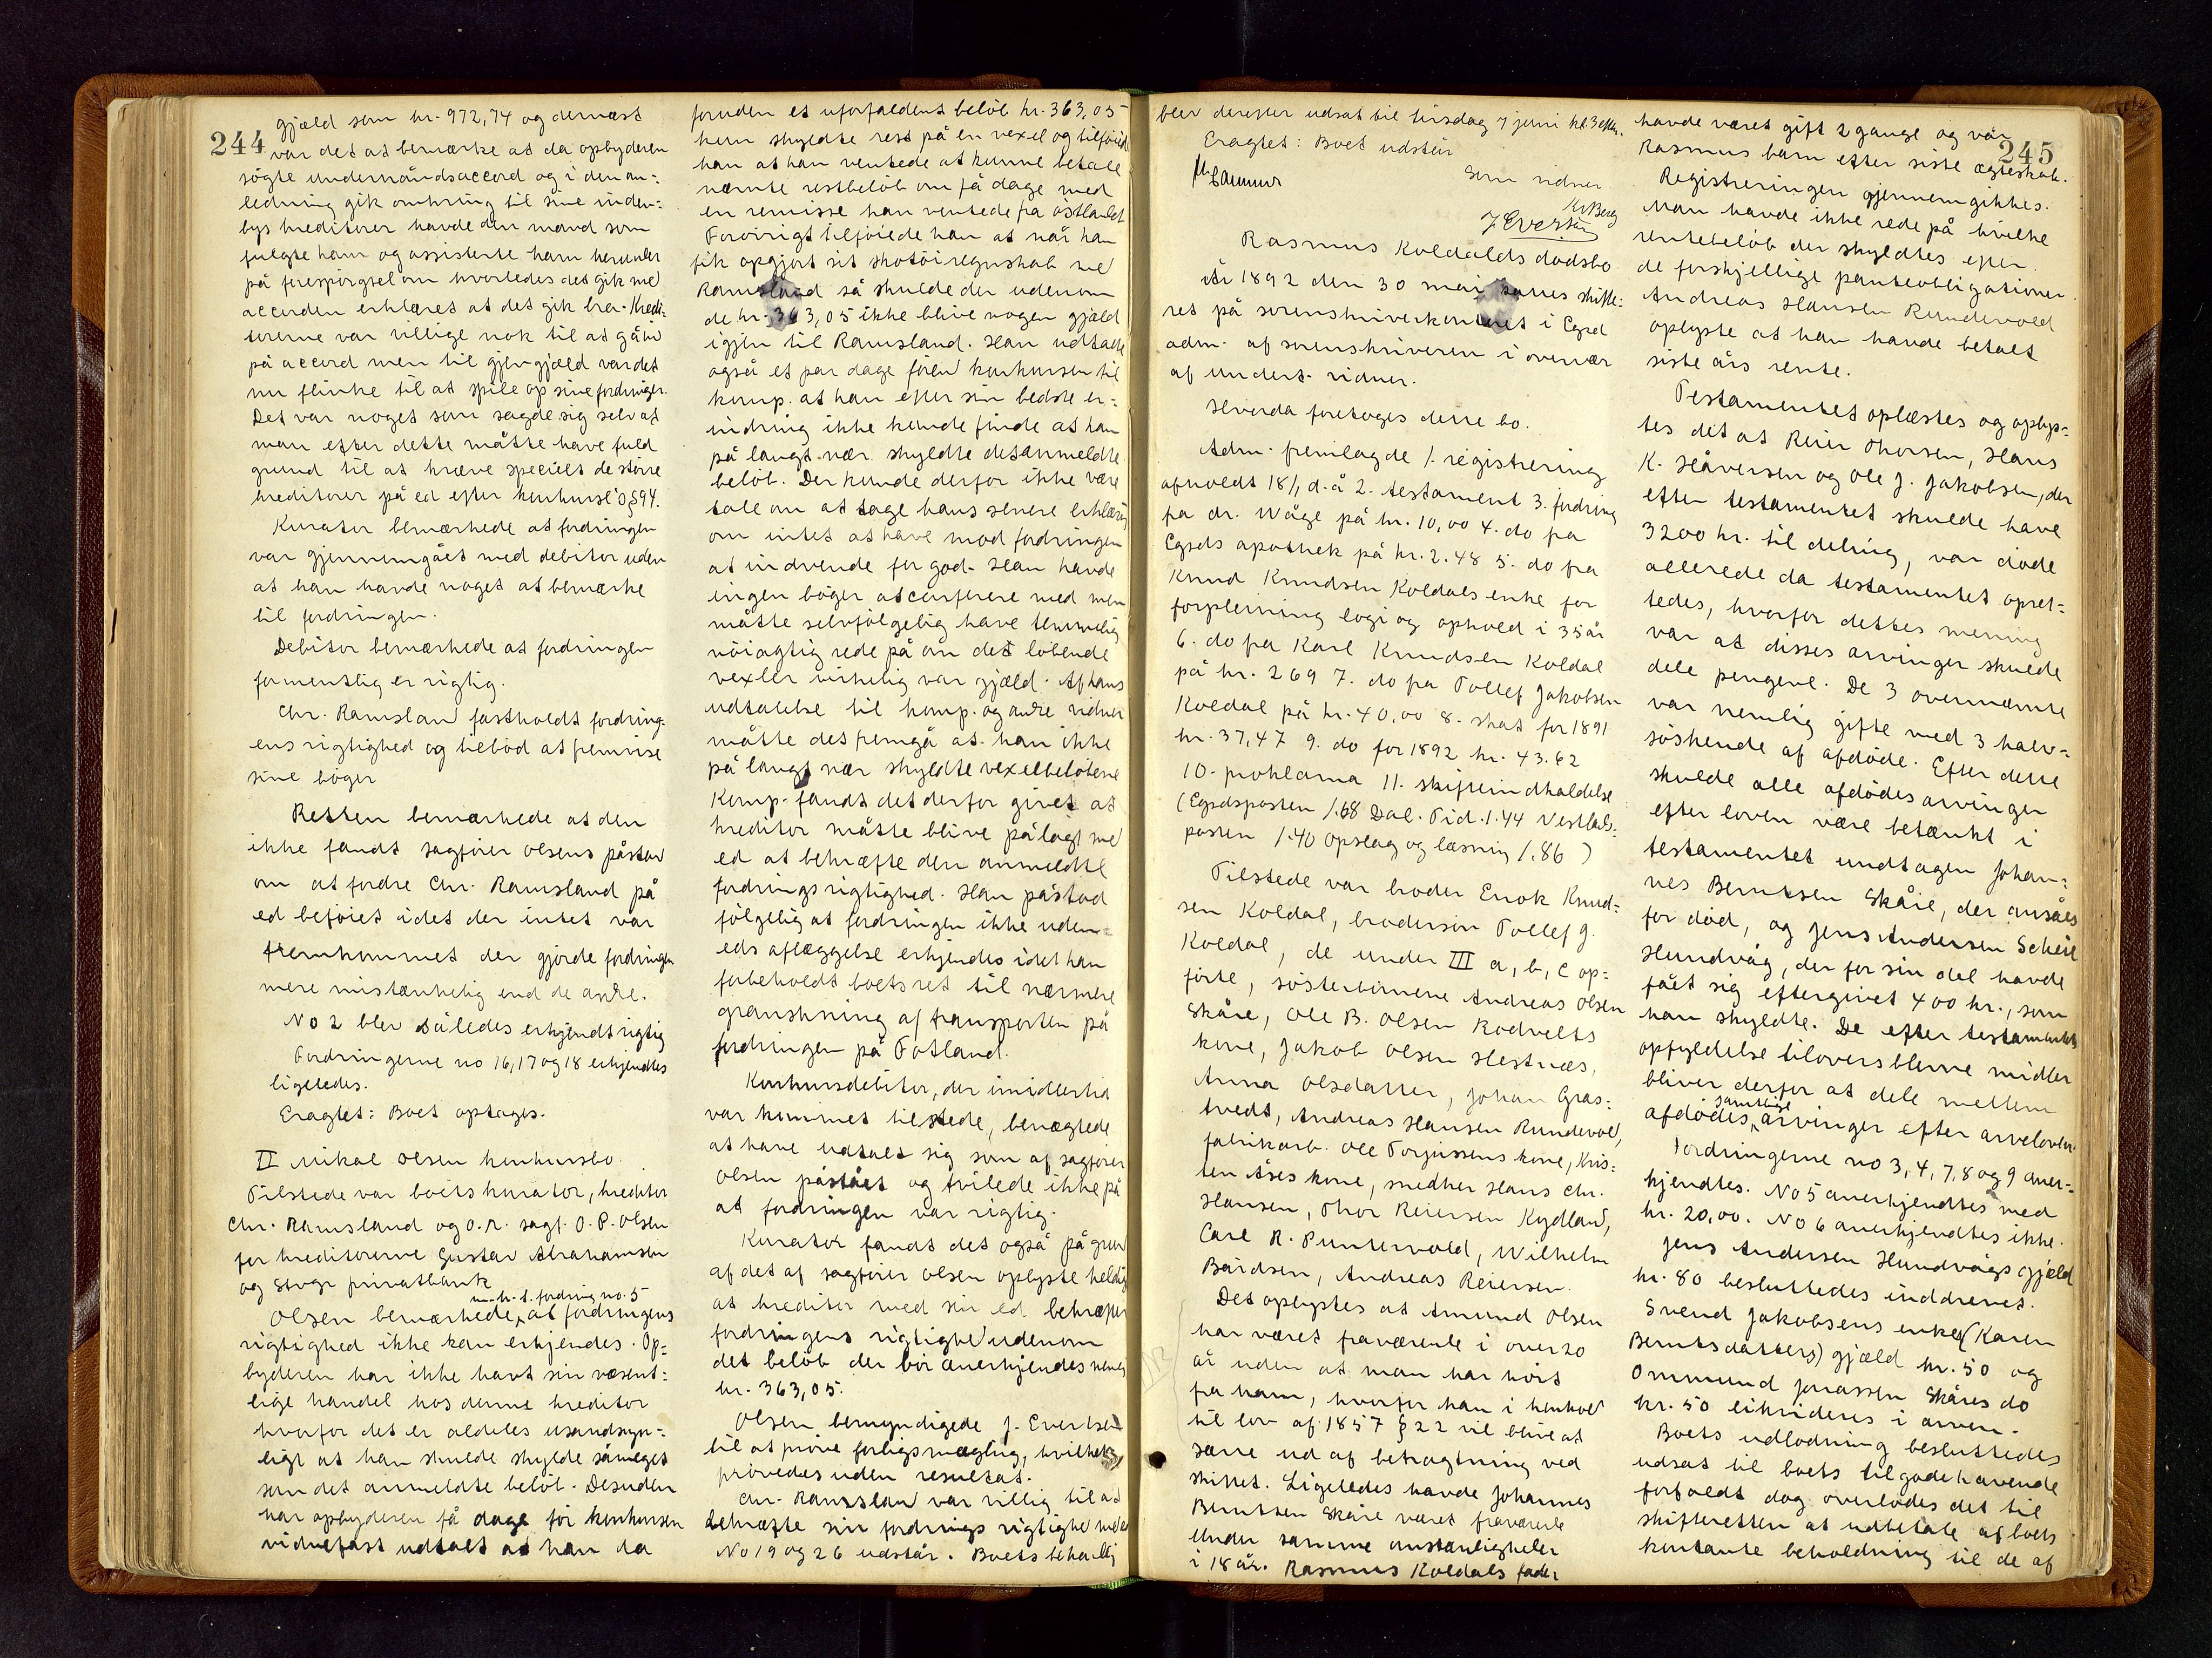 244
gjæld som kr. 972,74 og dernæst
var det at bemærke at da opbyderen
søgte underhåndsaccord og i den an-
ledning gik omkring til sine inden-
bys kreditorer havde den mand som
fulgte ham og assisterte ham herunder
på forespørgsel om hvorledes det gik med
accorden erklæret at det gik bra. Kredi-
torerne var villige nok til at gå ind
på accord men til gjengjæld var det
nu flinke til at spile op sine fordringer.
Det var noget som sagde sig selv at
man efter dette måtte have fuld
grund til at kræve specielt de større
kreditorer på ed efter konkursl. § 94.
Kurator bemærkede at fordringen
var gjennemgået med debitor uden
at han havde noget at bemærke
til fordringen.
Debitor bemærkede at fordringen
formentlig er rigtig.
Chr. Ramsland fastholdt fordring-
ens rigtighed og tilbød at fremvise
sine bøger
Retten bemærkede at den
ikke fandt sagfører Olsens påstand
om at fordre Chr. Ramsland på
ed beføiet idet der intet var
fremkommet der gjorde fordringen
mere mistænkelig end de andre.
No 2 blev således erkjendt rigtig
Fordringerne no 16, 17 og 18 erkjendtes
ligeledes.
Eragtet: Boet optages.
II Mikal Olsen konkursbo.
Tilstede var boets kurator, kreditor
Chr. Ramsland og o.r. sagf. O. P. Olsen
for kreditorerne Gustav Abrahamsen
og Stvgr privatbank
m. h. t. fordring no. 5
Olsen bemærkede, at fordringens
rigtighed ikke kan erkjendes. Op-
byderen har ikke havt sin væsent-
lige handel hos denne kreditor
hvorfor det er aldeles usandsyn-
ligt at han skulde skylde såmeget
som det anmeldte beløb. Desuden
har opbyderen få dage før konkursen
vidnefast udtalt at han da
foruden et uforfaldent beløb kr. 363,05
kun skyldte rest på en vexel og tilføied
han at han ventede at kunne betale
nævnte restbeløb om få dage med
en remisse han ventede fra østlandet
Forøvrigt tilføiede han at når han
fik opgjort sit skotøiregnskab med
Ramsland så skulde der udenom
de kr. 363,05 ikke blive nogen gjæld
igjen til Ramsland. Han udtalte
også et par dage førend konkursen til
komp. at han efter sin bedste er-
indring ikke kunde finde at han
på langt nær skyldte det anmeldte
beløb. Der kunde derfor ikke være
tale om at tage hans senere erklæring
om intet at have mod fordringen
at indvende for god. Han havde
ingen bøger at conferere med men
måtte selvfølgelig have temmelig
nøiagtig rede på om det løbende
vexler virkelig var gjæld. Af hans
udtalelse til komp. og andre vidner
måtte det fremgå at han ikke
på langt nær skyldte vexelbeløbene
Komp. fandt det derfor givet at
kreditor måtte blive pålagt med
ed at bekræfte den anmeldte
fordrings rigtighed. Han påstod
følgelig at fordringen ikke uden
eds aflæggelse erkjendes idet han
forbeholdt boets ret til nærmere
granskning af transporten på
fordringen på Fotland.
Konkursdebitor, der imidlertid
var kommet tilstede, benægtede
at have udtalt sig som af sagfører
Olsen påstået og tvilede ikke på
at fordringen var rigtig.
Kurator fandt det også på grund
af det af sagfører Olsen oplyste heldig
at kreditor med sin ed bekræfter
fordringens rigtighed udenom
det beløb der bør anerkjendes nemlig
kr. 363,05.
Olsen bemyndigede J. Evertsen
til at prøve forligsmægling, hvilket
prøvedes uden resultat.
Chr. Ramsland var villig til at
bekræfte sin fordrings rigtighed med ed
No 19 og 26 udstår. Boets behandl
245
blev derefter udsat til tirsdag 7 juni kl. 3 eftm.
Eragtet: Boet udstår
Som vidner
Kr. Berg
J Evertsen
Rasmus Koldalds dødsbo
År 1892 den 30 mai sattes skifte-
ret på sorenskriverkontoret i Egrd
adm. af sorenskriveren i overvær
af undert. vidner.
Hvorda foretoges dette bo.
Adm. fremlagde 1. registrering
afholdt 18/1 d. å 2. testament 3. fordring
fra dr. Wåge på kr. 10,00 4. do fra
Egrds apothek på kr. 2.48 5. do fra
Knud Knudsen Koldals enke for
forpleining logi og ophold i 35 år
6. do fra Karl Knudsen Koldal
på kr. 269 7. do fra Tollef Jakobsen
Koldal på kr. 40.00 8. skat for 1891
kr. 37,47 9. do for 1892 kr. 43.62
10. proklama 11. skifteindkaldelse
(Egrdsposten 1.68 Dal. Tid. 1.44 Vestlands-
posten 1.40 opslag og læsning 1.86)
Tilstede var broder Enok Knud-
sen Koldal, brodersøn Tollef J.
Koldal, de under III a, b, c op-
førte, søsterbørnene Andreas Olsen
Skåre, Ole B. Olsen Rodvelts
kone, Jakob Olsen Hestnæs,
Anna Olsdatter, Johan Gras-
tvedt, Andreas Hansen Rundevold,
fabrikarb. Ole Torjussens kone, Kris-
ten Åses kone, snedker Hans Chr.
Hansen, Thor Reiersen Kydland,
Carl R. Puntervold, Wilhelm
Bårdsen, Andreas Reiersen.
Det oplystes at Amund Olsen
har været fraværende i over 20
år uden at man har hørt
fra ham, hvorfor han i henhold
til lov af 1857 § 22 vil blive at
sætte ud af betragtning ved
skiftet. Ligeledes havde Johannes
Berntsen Skåre været fraværende
under samme omstændigheder
i 18 år. Rasmus Koldals fader
havde været gift 2 gange og var
Rasmus barn efter siste ægteskab.
Registreringen gjennemgikkes.
Man havde ikke rede på hvilke
rentebeløb der skyldtes efter
de forskjellige panteobligationer.
Andreas Hansen Rundevold
oplyste at han havde betalt
siste års rente.
Testamentet oplæstes og oplys-
tes det at Reier Thorsen, Hans
K. Håversen og Ole J. Jakobsen, der
efter testamentet skulde have
3200 kr. til deling, var døde
allerede da testamentet opret-
tedes, hvorfor dettes mening
var at disses arvinger skulde
dele pengene. De 3 ovennævnte
var nemlig gifte med 3 halv-
søskende af afdøde. Efter dette
skulde alle afdødes arvinger
efter loven være betænkt i
testamentet undtagen Johan-
nes Berntsen Skåre, der ansåes
for død, og Jens Andersen Scheie
Hundvåg, der for sin del havde
fået sig eftergivet 400 kr., som
han skyldte. De efter testamentets
opfyldelse tiloversblevne midler
bliver derfor at dele mellem
samtlige
afdødes arvinger efter arveloven.
Fordringerne no 3, 4, 7, 8 og 9 aner-
kjendtes. No 5 anerkjendtes med
kr. 20,00. No 6 anerkjendtes ikke.
Jens Andersen Hundvågs gjæld
kr. 80 besluttedes inddrevet.
Svend Jakobsens enke (Karen
Berntsdatters) gjæld kr. 50 og
Ommund Jonassen Skåres do
kr. 50 likvideres i arven.
Boets udlodning besluttedes
udsat til boets tilgodehavende
forfaldt dog overlodes det til
skifteretten at udbetale af boets
kontante beholdning til de af